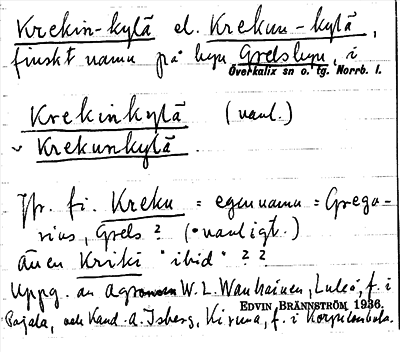 Krekin-kylä el. Krekun-kylä,
finskt namn på byn Grelsbyn, i
Överkalix sn o. tg. Norrb. l.
Krekinkylä (vanl.)
Krekunkylä.
Jfr. fi. Kreku = egennamn = Grego-
rius, Grels? (vanligt.)
även Kriki "ibid" ??
Uppg. av agronom W. L. Wanhainen, Luleå, f. i
EDVIN BRÄNNSTRÖM 1936.
Pajala, och Kand. A. Isberg, Kiruna, f. i Korpilombolo.